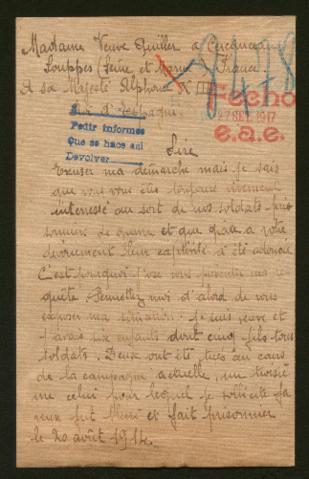 Madame Veuve Quiller a Cercanceaux
Souppes (Seine et Marne) France.
A sa Majesté Alphonse XIII
Roi d'Espagne
8428
Fecho
27 SET. 1917
e.a e.
Pedir informes
Que se hace asi
Devolver
Sire
Excuser ma démarche mais je sais
que vous vous êtes toujours vivement
interressé au sort de nos soldats pri
sonniers de guerre et que grâce a votre
dévouement leur captivité a été adoucie
C'est pourquoi j'ose vous présenter ma re
quête Permettez moi d'abord de vous
exposer ma situation: Je suis veuve et
j'avais six enfants dont cinq fils tous
soldats. Deux ont été tués au cours
de la campagne actuelle, un troisiè
me celui pour lequel je sollicite fa
veur fut blessé et fait prisonnier
le 20 août 1914.